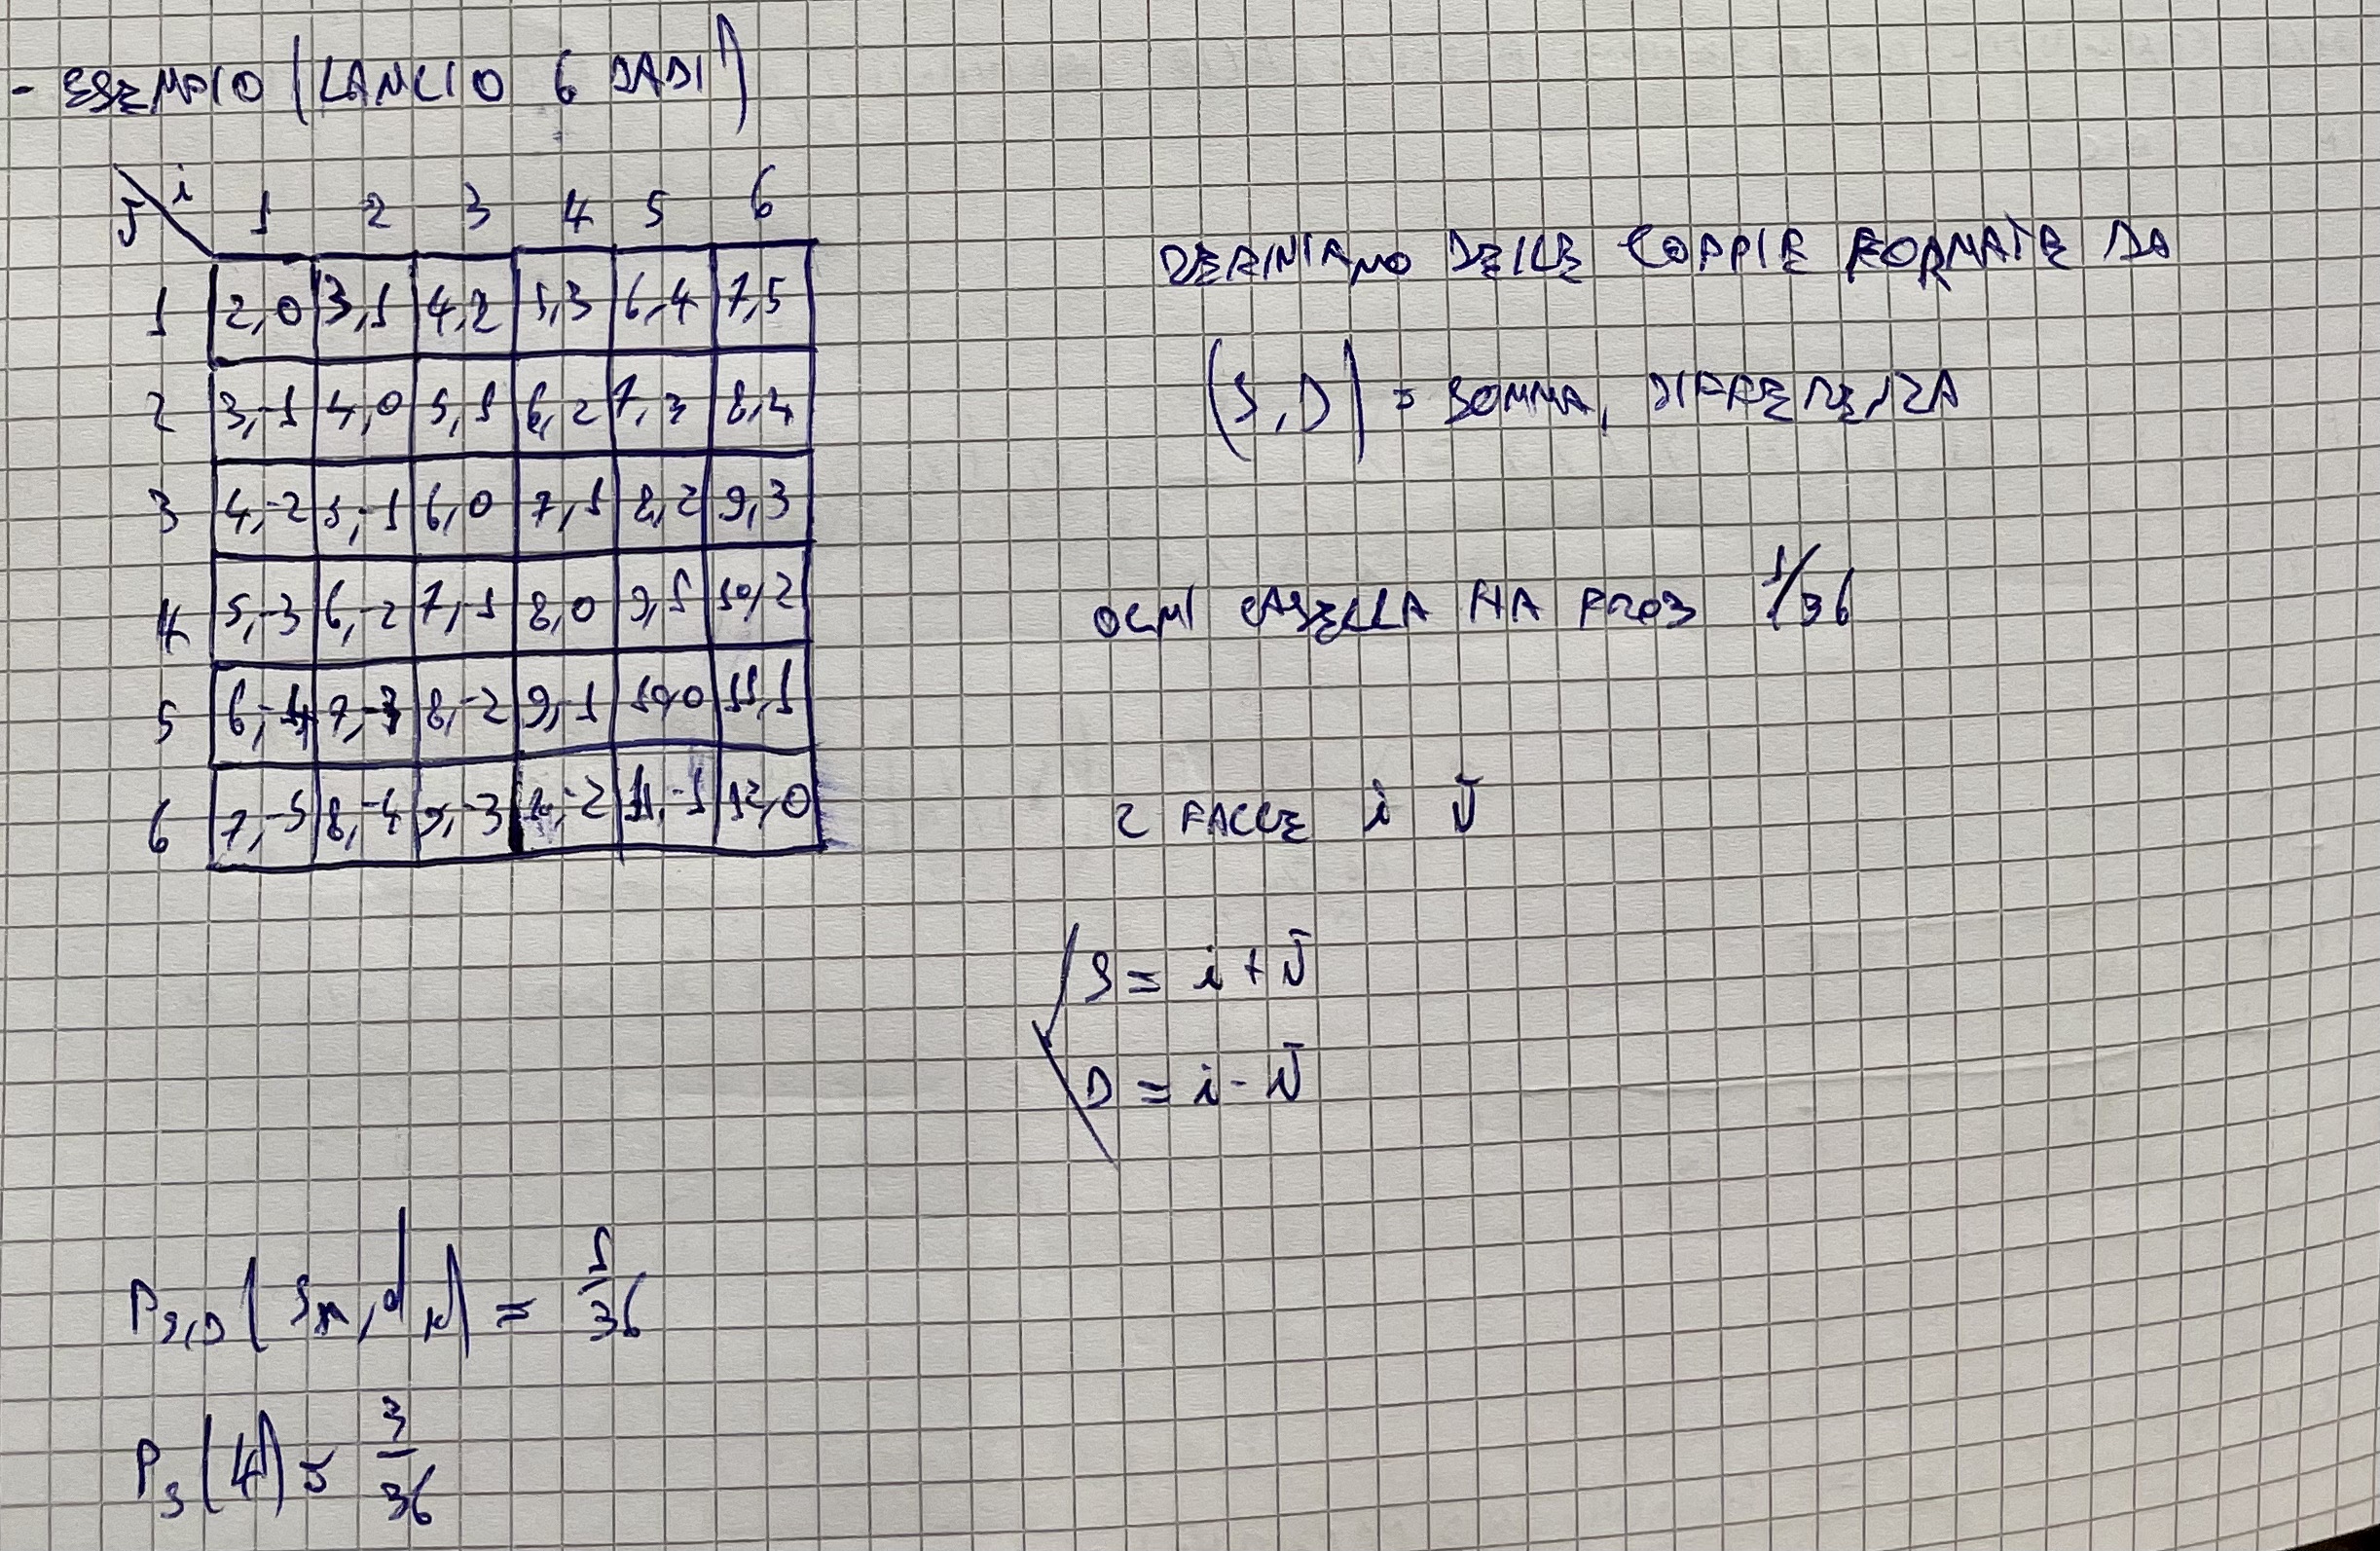 - ESEMPIO (LANCIO 6 DADI)
J \ i 1 2 3 4 5 6
1 2,0 3,1 4,2 5,3 6,4 7,5
2 3,-1 4,0 5,1 6,2 7,3 8,4
3 4,-2 5,-1 6,0 7,1 8,2 9,3
4 5,-3 6,-2 7,-1 8,0 9,1 10,2
5 6,-4 7,-3 8,-2 9,-1 10,0 11,1
6 7,-5 8,-4 9,-3 10,-2 11,-1 12,0
DEFINIAMO DELLE COPPIE FORMATE DA
(S,D) = SOMMA, DIFFERENZA
OGNI CASELLA HA PROB 1/36
2 FACCE i J
S = i + J
D = i - J
P S,D (Sn, dk) = 1/36
P S (4) = 3/36